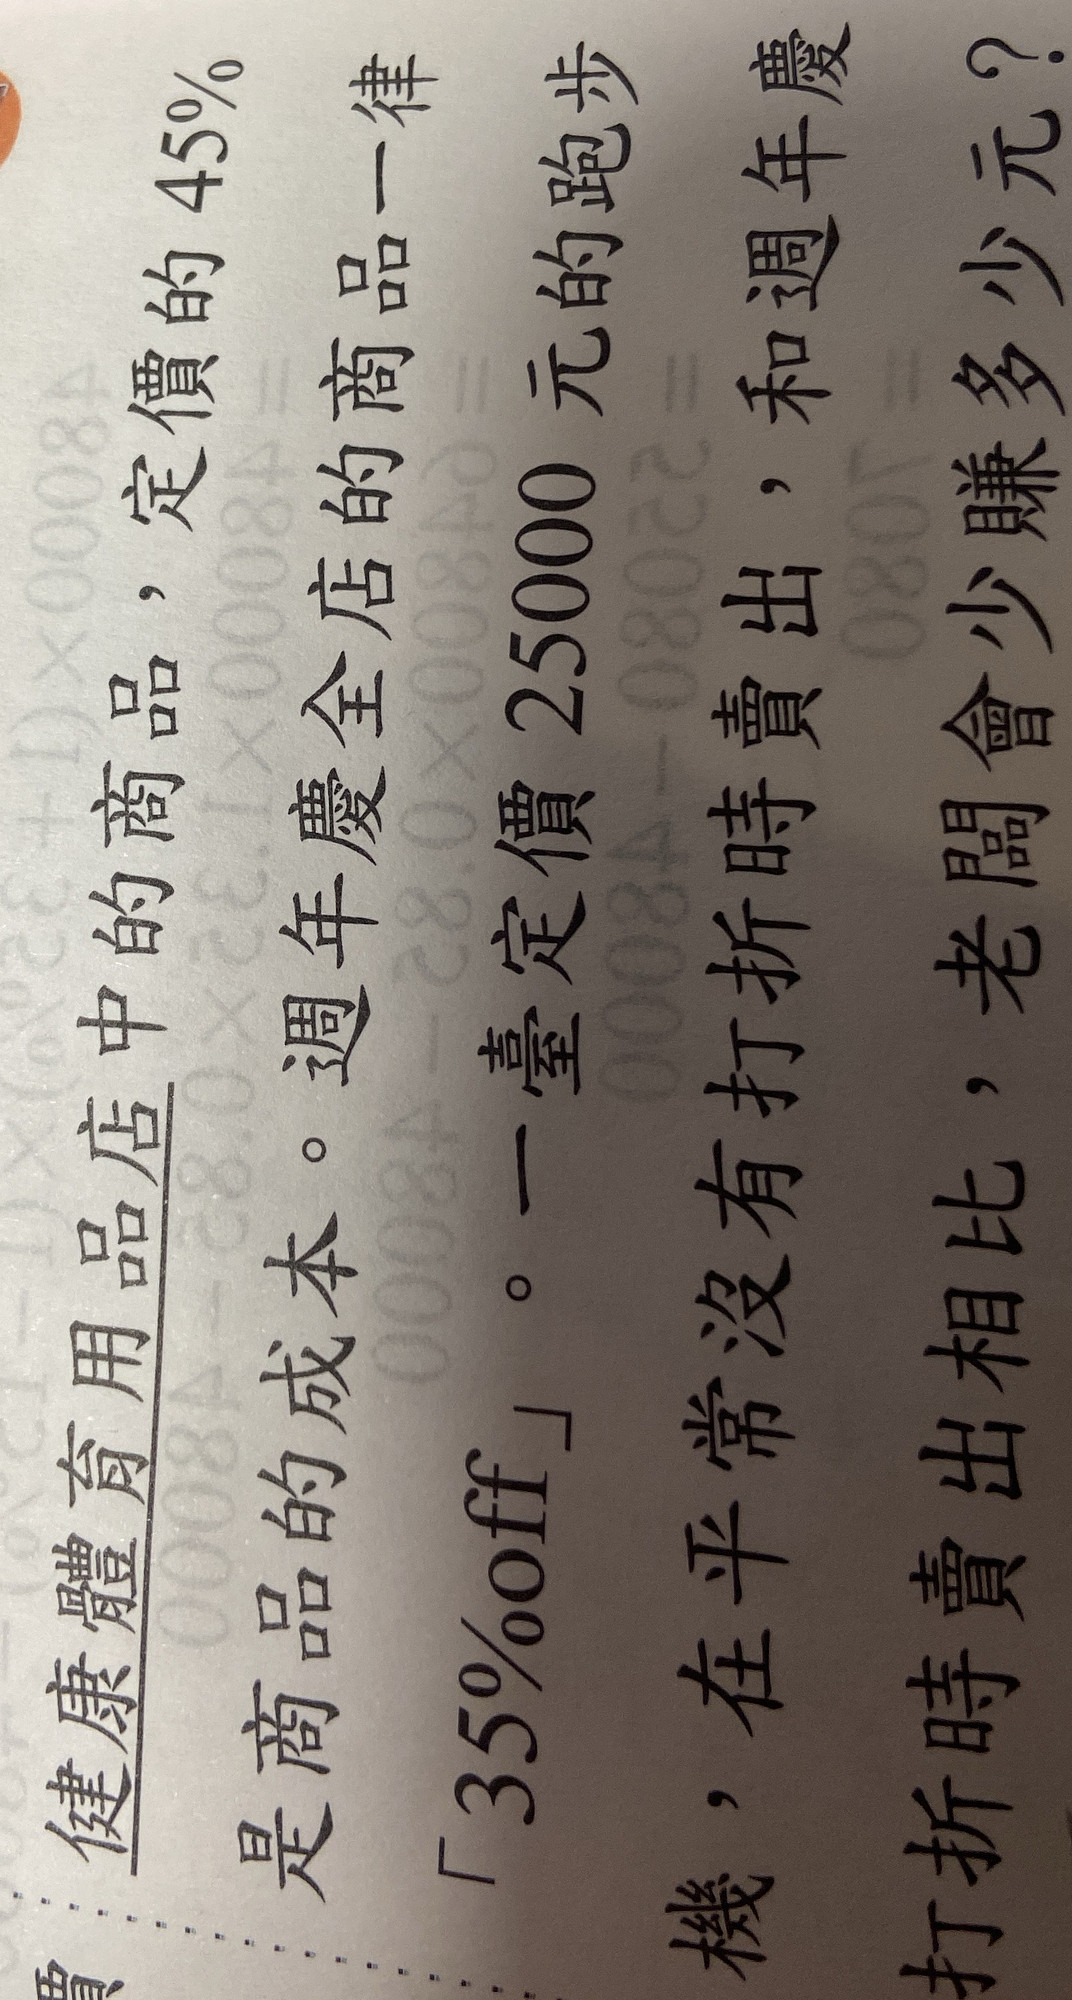 價
健康體育用品店中的商品，定價的 45%
是商品的成本。週年慶全店的商品一律
「35%off」。一臺定價 25000 元的跑步
機，在平常沒有打折時賣出，和週年慶
打折時賣出相比，老闆會少賺多少元？